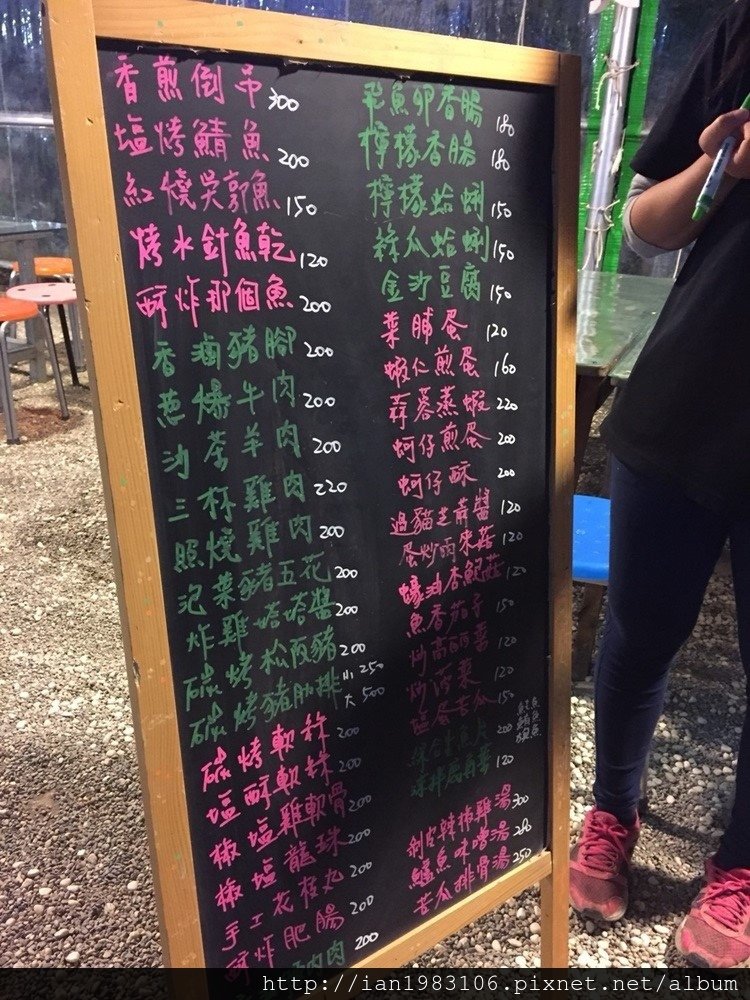 香煎倒吊 300
塩烤鯖魚 200
紅燒吳郭魚 150
烤水針魚乾 120
酥炸那個魚 200
香滷豬腳 200
蔥爆牛肉 200
沙茶羊肉 200
三杯雞肉 220
照燒雞肉 200
泡菜豬五花 200
炸雞塔塔醬 200
碳烤松阪豬 200
碳烤豬肋排 小250 大500
碳烤軟絲 200
塩酥軟絲 200
椒塩雞軟骨 200
椒塩龍珠 200
手工花枝丸 200
酥炸肥腸 200
肉 200
飛魚卵香腸 180
檸檬香腸 180
檸檬蛤蜊 150
絲瓜蛤蜊 150
金沙豆腐 150
菜脯蛋 120
蝦仁煎蛋 160
蒜蓉蒸蝦 220
蚵仔煎蛋 200
蚵仔酥 200
過貓芝麻醬 120
蛋炒雨來菇 120
蠔油杏鮑菇 120
魚香茄子 150
炒高麗菜 120
炒菠菜 120
塩蛋苦瓜 150
綜合生魚片 200
涼拌龍鬚菜 120
剝皮辣椒雞湯 300
鱸魚味噌湯 280
苦瓜排骨湯 250
http://ian1983106.pixnet.net/album